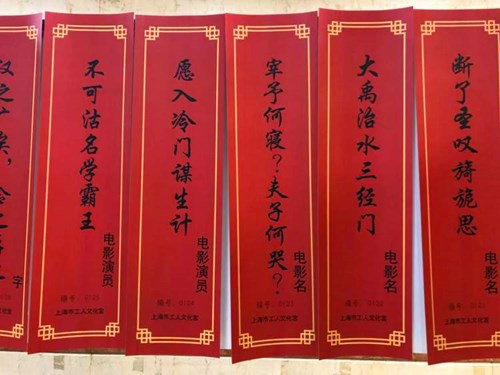 断了圣叹旖旎思
电影名
大禹治水三经门
电影名
编号：
上海市工人文化宫
宰予何寝？夫子何哭？
电影名
编号：
上海市工人文化宫
愿入冷门谋生计
电影演员
编号：
上海市工人文化宫
不可沽名学霸王
电影演员
编号：
上海市工人文化宫
之广矣，
字